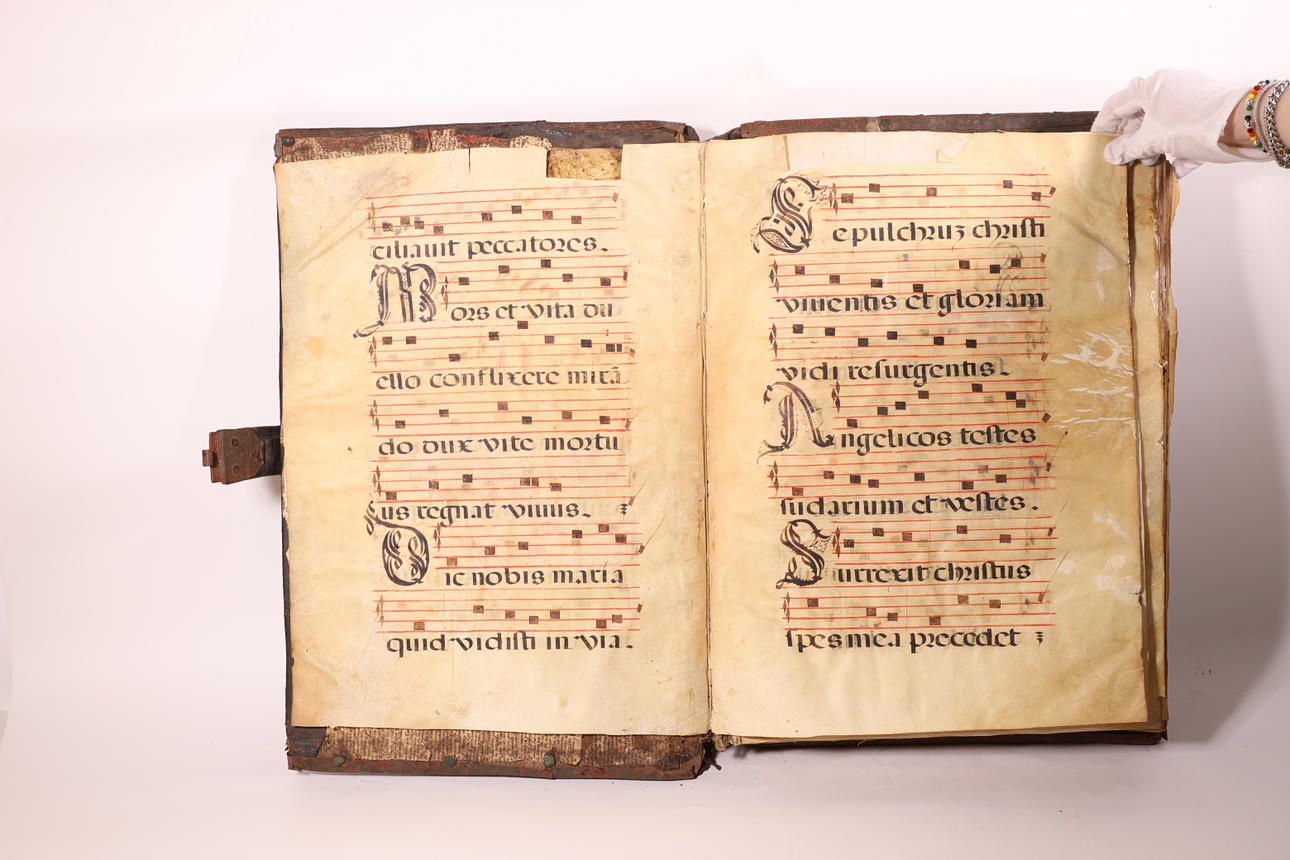 ciliauit peccatores.
Mors et vita du
ello conflixere mirã
do dux vite mortu
us regnat viuus.
Dic nobis maria
quid vidisti in via.
Sepulchruz christi
viuentis et gloriam
vidi resurgentis.
Angelicos testes
sudarium et vestes.
Surrexit christus
spes mea precedet